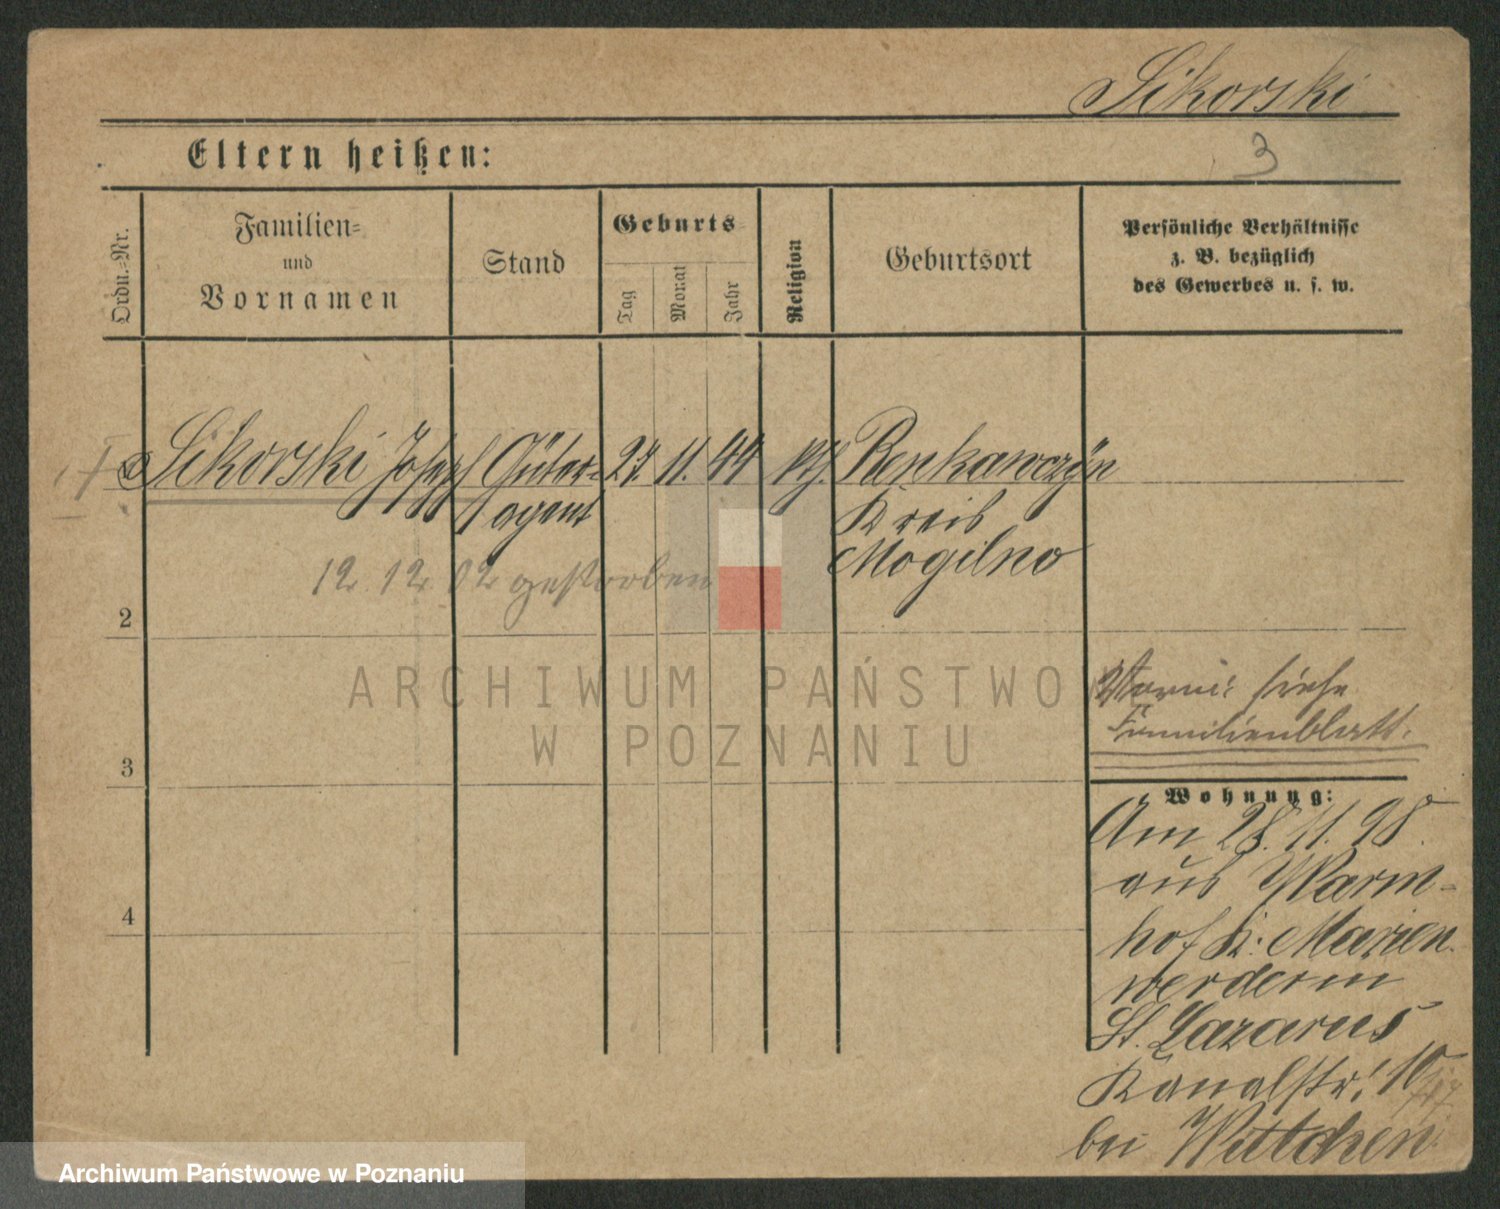 Sikorski
Eltern heißen:
3
Ordn.-Nr.
Familien-
und
Vornamen
Stand
Geburts
Tag
Monat
Jahr
Religion
Geburtsort
Persönliche Verhältnisse
z. B. bezüglich
des Gewerbes u. s. w.
Sikorski Josef Güter- 27. 11. 44 kth. Renkawczyn
agent Kreis
Mogilno
12. 12. 02 gestorben
2
ARCHIWUM PAŃSTWOWE
W POZNANIU
siehe
Familienblatt.
3
Wohnung:
Am 28. 11. 98.
aus Warm-
hof K. Marien
werder in
St. Lazarus
Kanalstr. 10
bei Wittchen
4
Archiwum Państwowe w Poznaniu